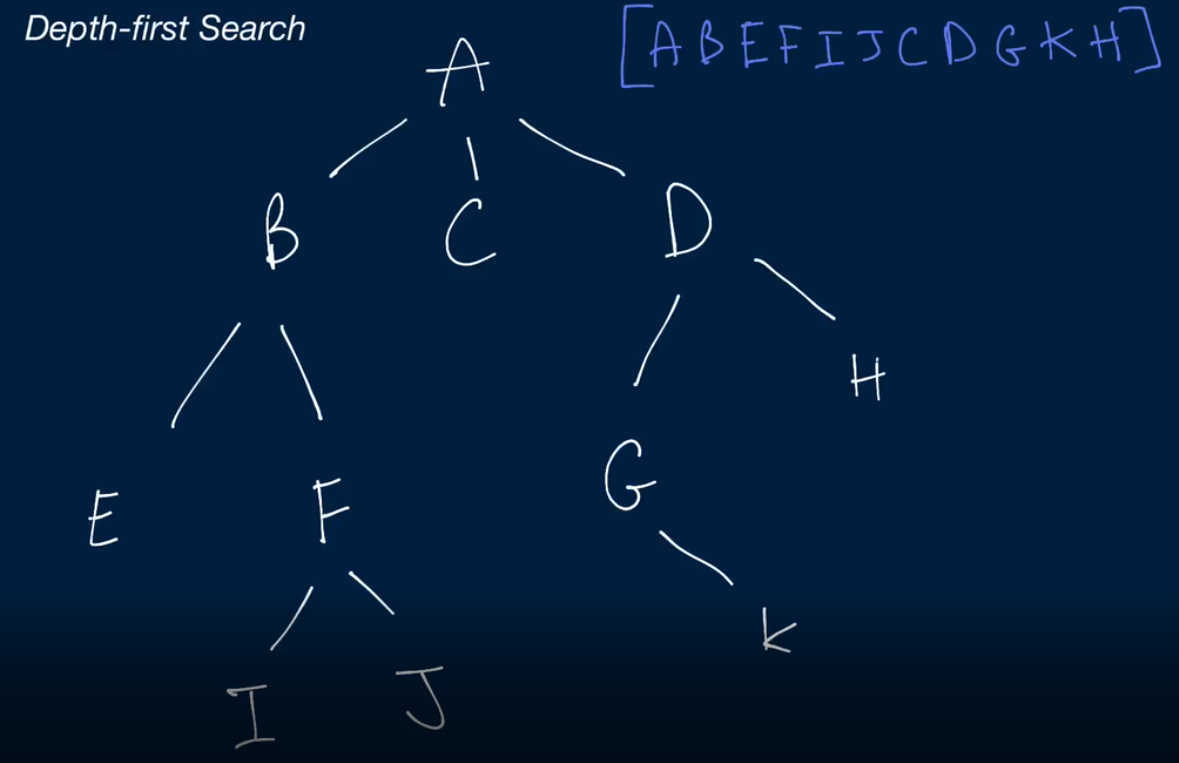 Depth-first Search
[A B E F I J C D G K H]
A
B C D
H
E F G
K
I J